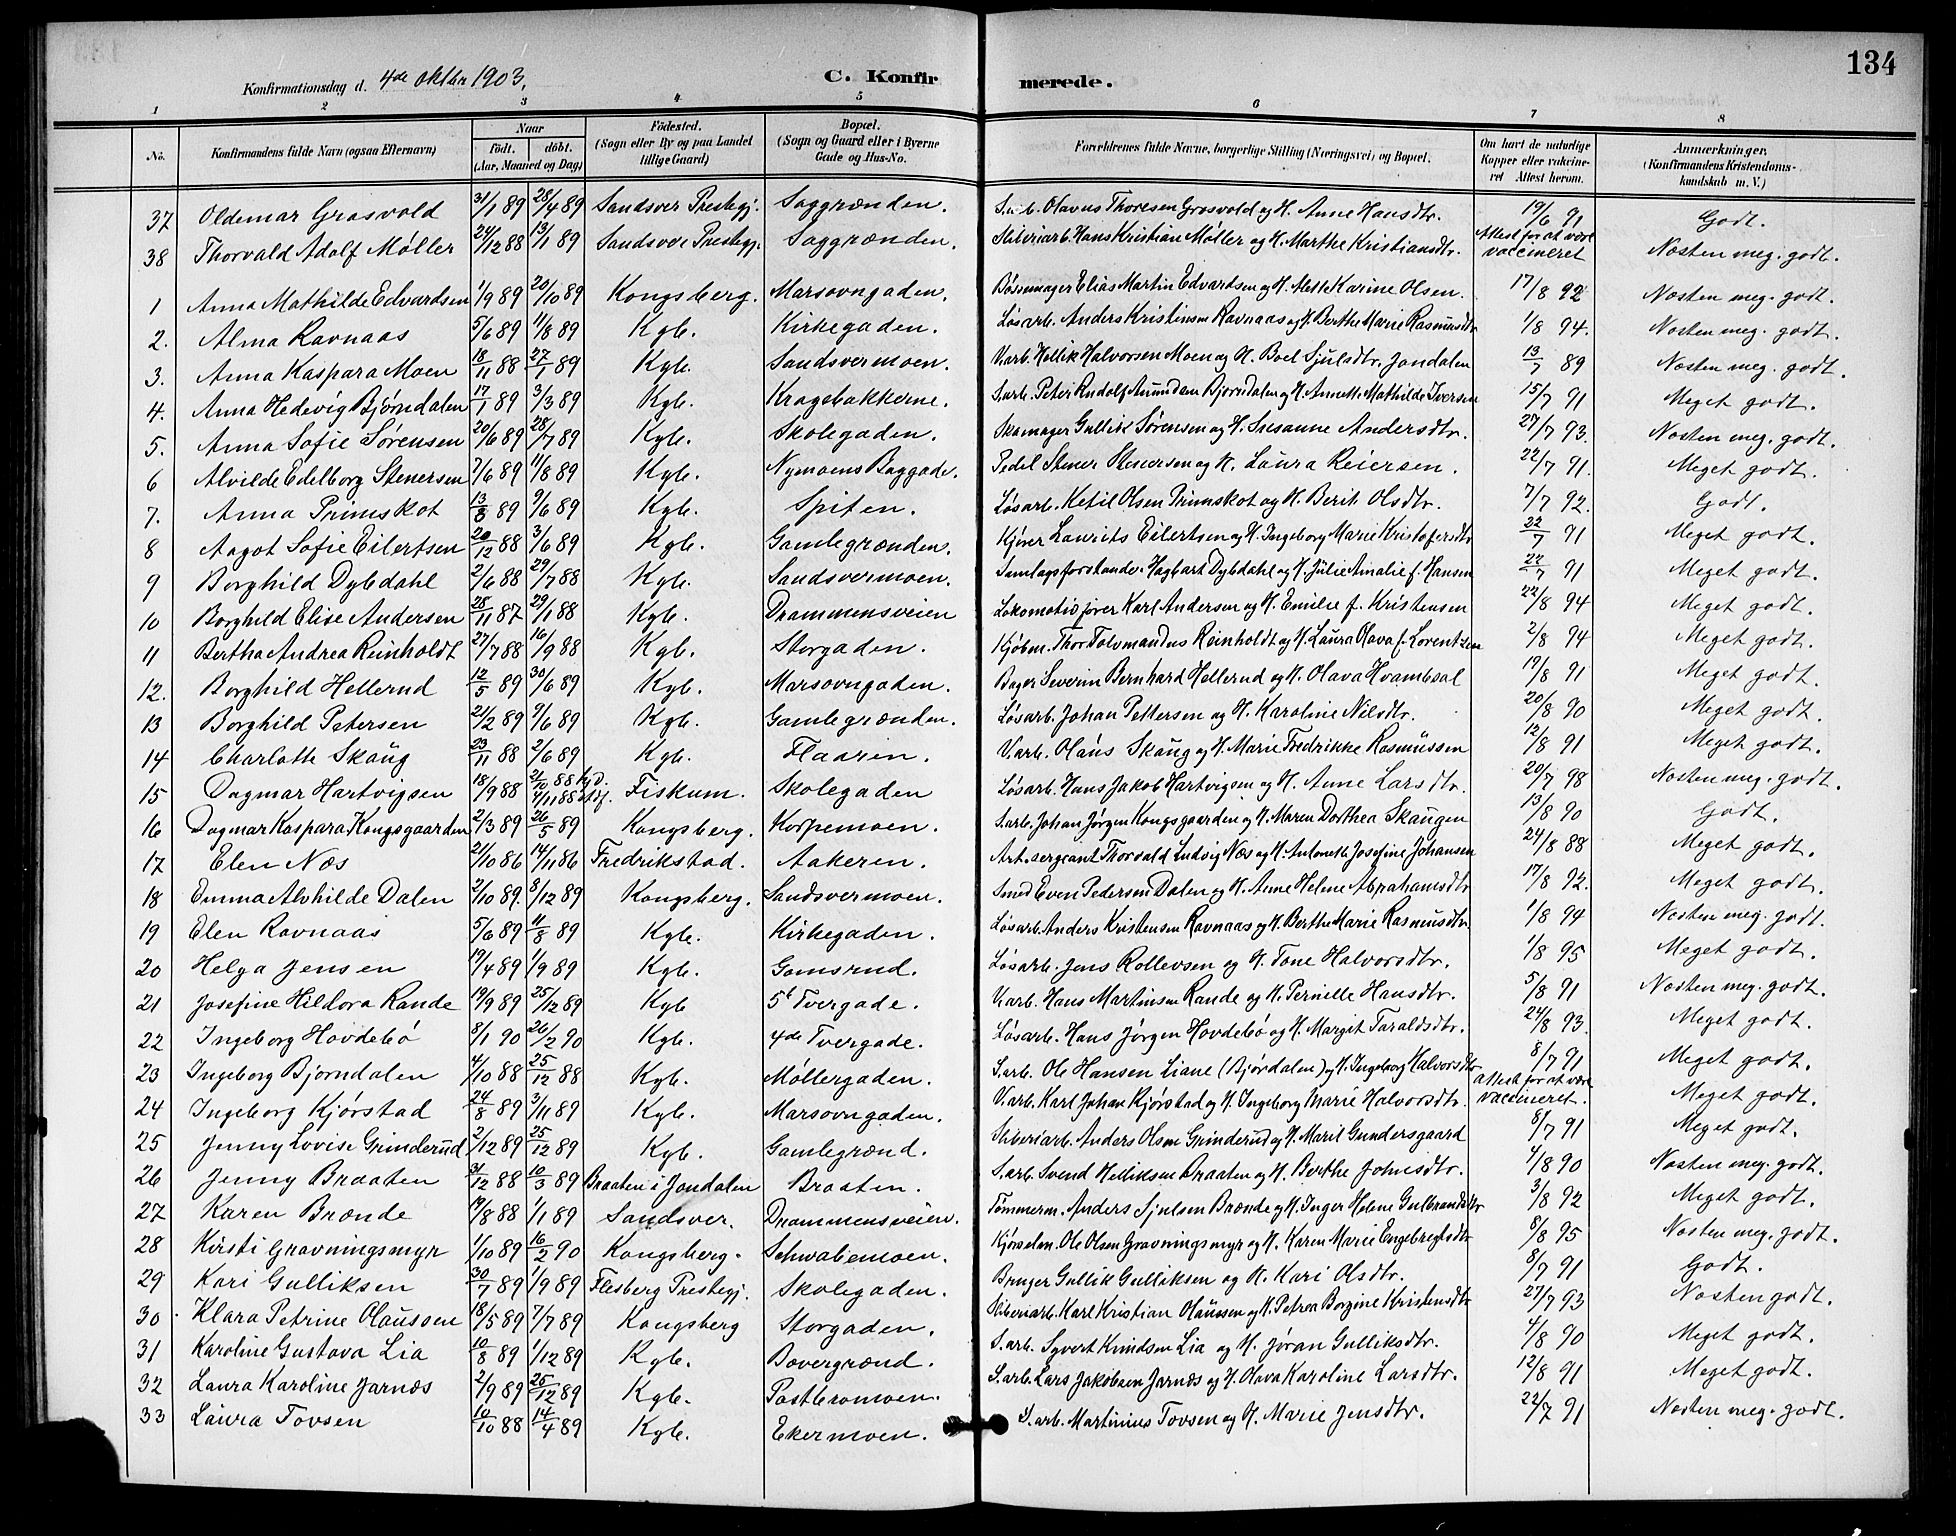 134
Konfirmationsdag d. 4de oktbr 1903.
C. Konfirmerede.
1 2 3 4 5 6 7 8
No. Konfirmandens fulde Navn (ogsaa Efternavn) Naar födt. döbt. (Aar, Maaned og Dag) Födested. (Sogn eller By og paa Landet tillige Gaard) Bopæl. (Sogn og Gaard eller i Byerne Gade og Hus-No. Forældrenes fulde Navne, borgerlige Stilling (Næringsvei) og Bopæl. Om havt de naturlige Kopper eller vakcineret Attest herom. Anmærkninger. (Konfirmandens Kristendomskundskab m. V.)
37 Oldemar Grosvold 31/1 89 28/4 89 Sandsver Prestegj. Saggrænden. S.arb. Olavus Thoresen Grosvold og H. Anne Hansdtr. 19/6 91 Godt.
38 Thorvald Adolf Møller 24/12 88 13/1 89 Sandsver Prestegj. Saggrænden. Sliberiarb. Hans Kristian Møller og H. Marthe Kristiansdtr. Attest for at være vaccineret Næsten meg. godt.
1 Anna Mathilde Edvardsen 1/9 89 20/10 89 Kongsberg. Marsovngaden. Bøssemager Elias Martin Edvardsen og H. Mette Karine Olsen. 17/8 92 Næsten meg. godt.
2. Alma Ravnaas 5/6 89 11/8 89 Kgb. Kirkegaden. Løsarb. Anders Kristensen Ravnaas og H. Berthe Marie Rasmusdtr 1/8 94. Næsten meg. godt.
3. Anna Kaspara Moen 18/11 88 27/1 89 Kgb. Sandsvermoen. V.arb. Hellik Halvorsen Moen og H. Boel Sjulsdtr. Jondalen 13/7 89 Næsten meg. godt.
4. Anna Hedevig Bjørndalen 17/1 89 3/3 89 Kgb. Kragsbakkerne. S.arb. Peter Rudolf Amundsen Bjørndalen og H. Annette Mathilde Iversen 15/7 91 Meget godt.
5. Anna Sofie Sørensen 20/6 89 28/7 89 Kgb. Skolegaden. Skomager Gullik Sørensen og H. Susanne Andersdtr. 27/7 93. Næsten meg. godt.
6 Alvilde Edelborg Stenersen 7/6 89 11/8 89 Kgb. Nymoens Baggade. Pedel Stener Stenersen og H. Laura Reiersen. 22/7 91. Meget godt.
7. Anna Primskot 13/3 89 9/6 89 Kgb. Spiten. Løsarb. Ketil Olsen Primskot og H. Berit Olsdtr. 7/7 92. Godt.
8 Aagot Sofie Eilertsen 20/12 88 3/6 89 Kgb. Gamlegrænden. Kjører Laurits Eilertsen og H. Ingeborg Marie Kristofersdtr 22/7 91 Meget godt.
9 Borghild Dybdahl 2/6 88 29/7 88 Kgb. Sandsvermoen. Samlagsforstander Hagbart Dybdahl og H. Julie Amalie f. Hansen 22/7 91 Meget godt.
10 Borghild Elise Andersen 28/11 87 29/1 88 Kgb. Drammensveien Lokomotivfører Karl Andersen og H. Emilie f. Kristensen 22/8 94 Meget godt.
11 Bertha Andrea Reinholdt 27/7 88 16/9 88 Kgb. Storgaden. Kjøbm. Thor Tolvmandus Reinholdt og H. Laura Olava f. Lorentzen 2/8 94 Meget godt.
12. Borghild Hellerud 12/5 89 30/6 89 Kgb. Marsovngaden. Bager Severin Bernhard Hellerud og H. Olava Hvambsal 19/8 91 Meget godt.
13 Borghild Petersen 21/2 89 9/6 89 Kgb. Gamlegrænden. Løsarb. Johan Pettersen og H. Karoline Nilsdtr. 20/8 90 Meget godt.
14 Charlotte Skaug 23/11 88 2/6 89 Kgb. Flaarin. V.arb. Olaus Skaug og H. Marie Fredrikke Rasmussen 12/8 91 Meget godt.
15 Dagmar Hartvigsen 18/9 88 21/10 88 hjd. 4/11 88 stf. Fiskum. Skolegaden Løsarb. Hans Jakob Hartvigsen og H. Anne Larsdtr. 20/7 98 Næsten meg. godt.
16 Dagmar Kaspara Kongsgaarden 2/3 89 26/5 89 Kongsberg. Korpemoen. S.arb. Johan Jørgen Kongsgaarden og H. Maren Dorthea Skaugen 13/8 90 Godt.
17 Elen Næs 21/10 86 14/11 86 Fredrikstad. Aakeren. Art. sergeant Thorvald Ludvig Næs og H. Antonette Josefine Johansen 24/8 88 Meget godt.
18 Emma Alvhilde Dalen 2/10 89. 8/12 89 Kongsberg. Sandsvermoen. Smed Even Pedersen Dalen og H. Anne Helene Abrahamsdtr 17/8 92. Meget godt.
19 Elen Ravnaas 5/6 89 11/8 89 Kgb. Kirkegaden. Løsarb. Anders Kristensen Ravnaas og H. Berthe Marie Rasmusdtr. 1/8 94 Næsten meg. godt.
20 Helga Jensen 19/4 89 1/9 89 Kgb. Gomsrud. Løsarb. Jens Rollevsen og H. Tone Halvorsdtr. 1/8 95 Meget godt.
21 Josefine Hildora Rande 19/9 89 25/12 89 Kgb 5t Tvergade. V.arb. Hans Martinsen Rande og H. Pernille Hansdtr. 5/8 91 Næsten meg. godt.
22 Ingeborg Hovdebø 8/1 90 26/2 90 Kgb. 4de Tvergade. Løsarb. Hans Jørgen Hovdebø og H. Margit Taraldsdtr. 24/8 93. Meget godt.
23 Ingeborg Bjørndalen 4/10 88 25/12 88 Kgb. Møllergaden. S.arb. Ole Hansen Liane (Bjørdalen) og H. Ingeborg Halvorsdtr 8/7 91 Meget godt.
24 Ingeborg Kjørstad 24/8 89 3/11 89 Kgb. Marsovngaden. V.arb. Karl Johan Kjørstad og H. Ingeborg Marie Halvorsdtr. Attest for at være vaccineret. Meget godt.
25 Jenny Lovise Grinderud 2/12 89 25/12 89 Kgb. Gamlegrænd. Sliberiarb. Anders Olsen Grinderud og H. Marit Gundersgaard 8/7 91 Meget godt.
26 Jenny Braaten 31/12 88 10/3 89 Braaten i Jondalen Braaten. S.arb. Svend Helliksen Braaten og H. Berthe Johnsdtr. 4/8 90 Næsten meg. godt.
27 Karen Brænde 19/8 88 1/1 89 Sandsver. Drammensveien. Tømmerm. Anders Sjulsen Brænde og H. Inger Helene Gulbrandsdtr 3/8 92 Meget godt.
28 Kirsti Gravningsmyr 1/10 89 16/2 90 Kongsberg. Schwabemoen. Kjøredm. Ole Olsen Gravningsmyr og H. Karen Marie Engebregtsdtr 8/8 95 Næsten meg. godt.
29 Kari Gulliksen 30/7 89 1/9 89 Flesberg Prestegj. Skolegaden. Bruger Gullik Gulliksen og H. Kari Olsdtr. 8/7 91 Godt.
30 Klara Petrine Olaussen 18/5 89 7/7 89 Kongsberg Storgaden. Sliberiarb. Karl Kristian Olaussen og H. Petrea Borgine Kristensdtr 27/7 93 Næsten godt.
31 Karoline Gustava Lia 10/8 89 1/12 89 Kgb. Bovergrænd. S.arb. Syvert Knudsen Lia og H. Jøran Gulliksdtr. 4/8 90 Meget godt.
32 Laura Karoline Jarnæs 2/9 89 25/12 89 Kgb. Postbromoen. S.arb. Lars Jakobsen Jarnæs og H. Olava Karoline Larsdtr. 12/8 91 Meget godt.
33 Laura Tovsen 10/10 88 14/4 89 Kgb. Ekermoen. S.arb. Martinius Tovsen og H. Marie Jensdtr. 22/7 91 Næsten meg. godt.